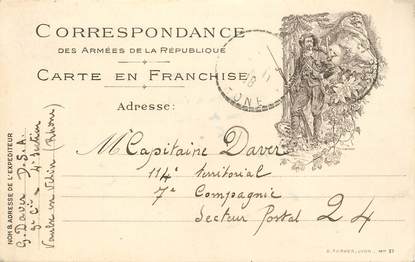 CORRESPONDANCE
DES ARMÉES DE LA RÉPUBLIQUE
CARTE EN FRANCHISE
Adresse:
Mr Capitaine Daver
114e territorial
7e Compagnie
Secteur Postal 24
NOM & ADRESSE DE L'EXPÉDITEUR
G. Daver D.S.A.
9e Cie 4e Section
Vaulx en Velin (Rhône)